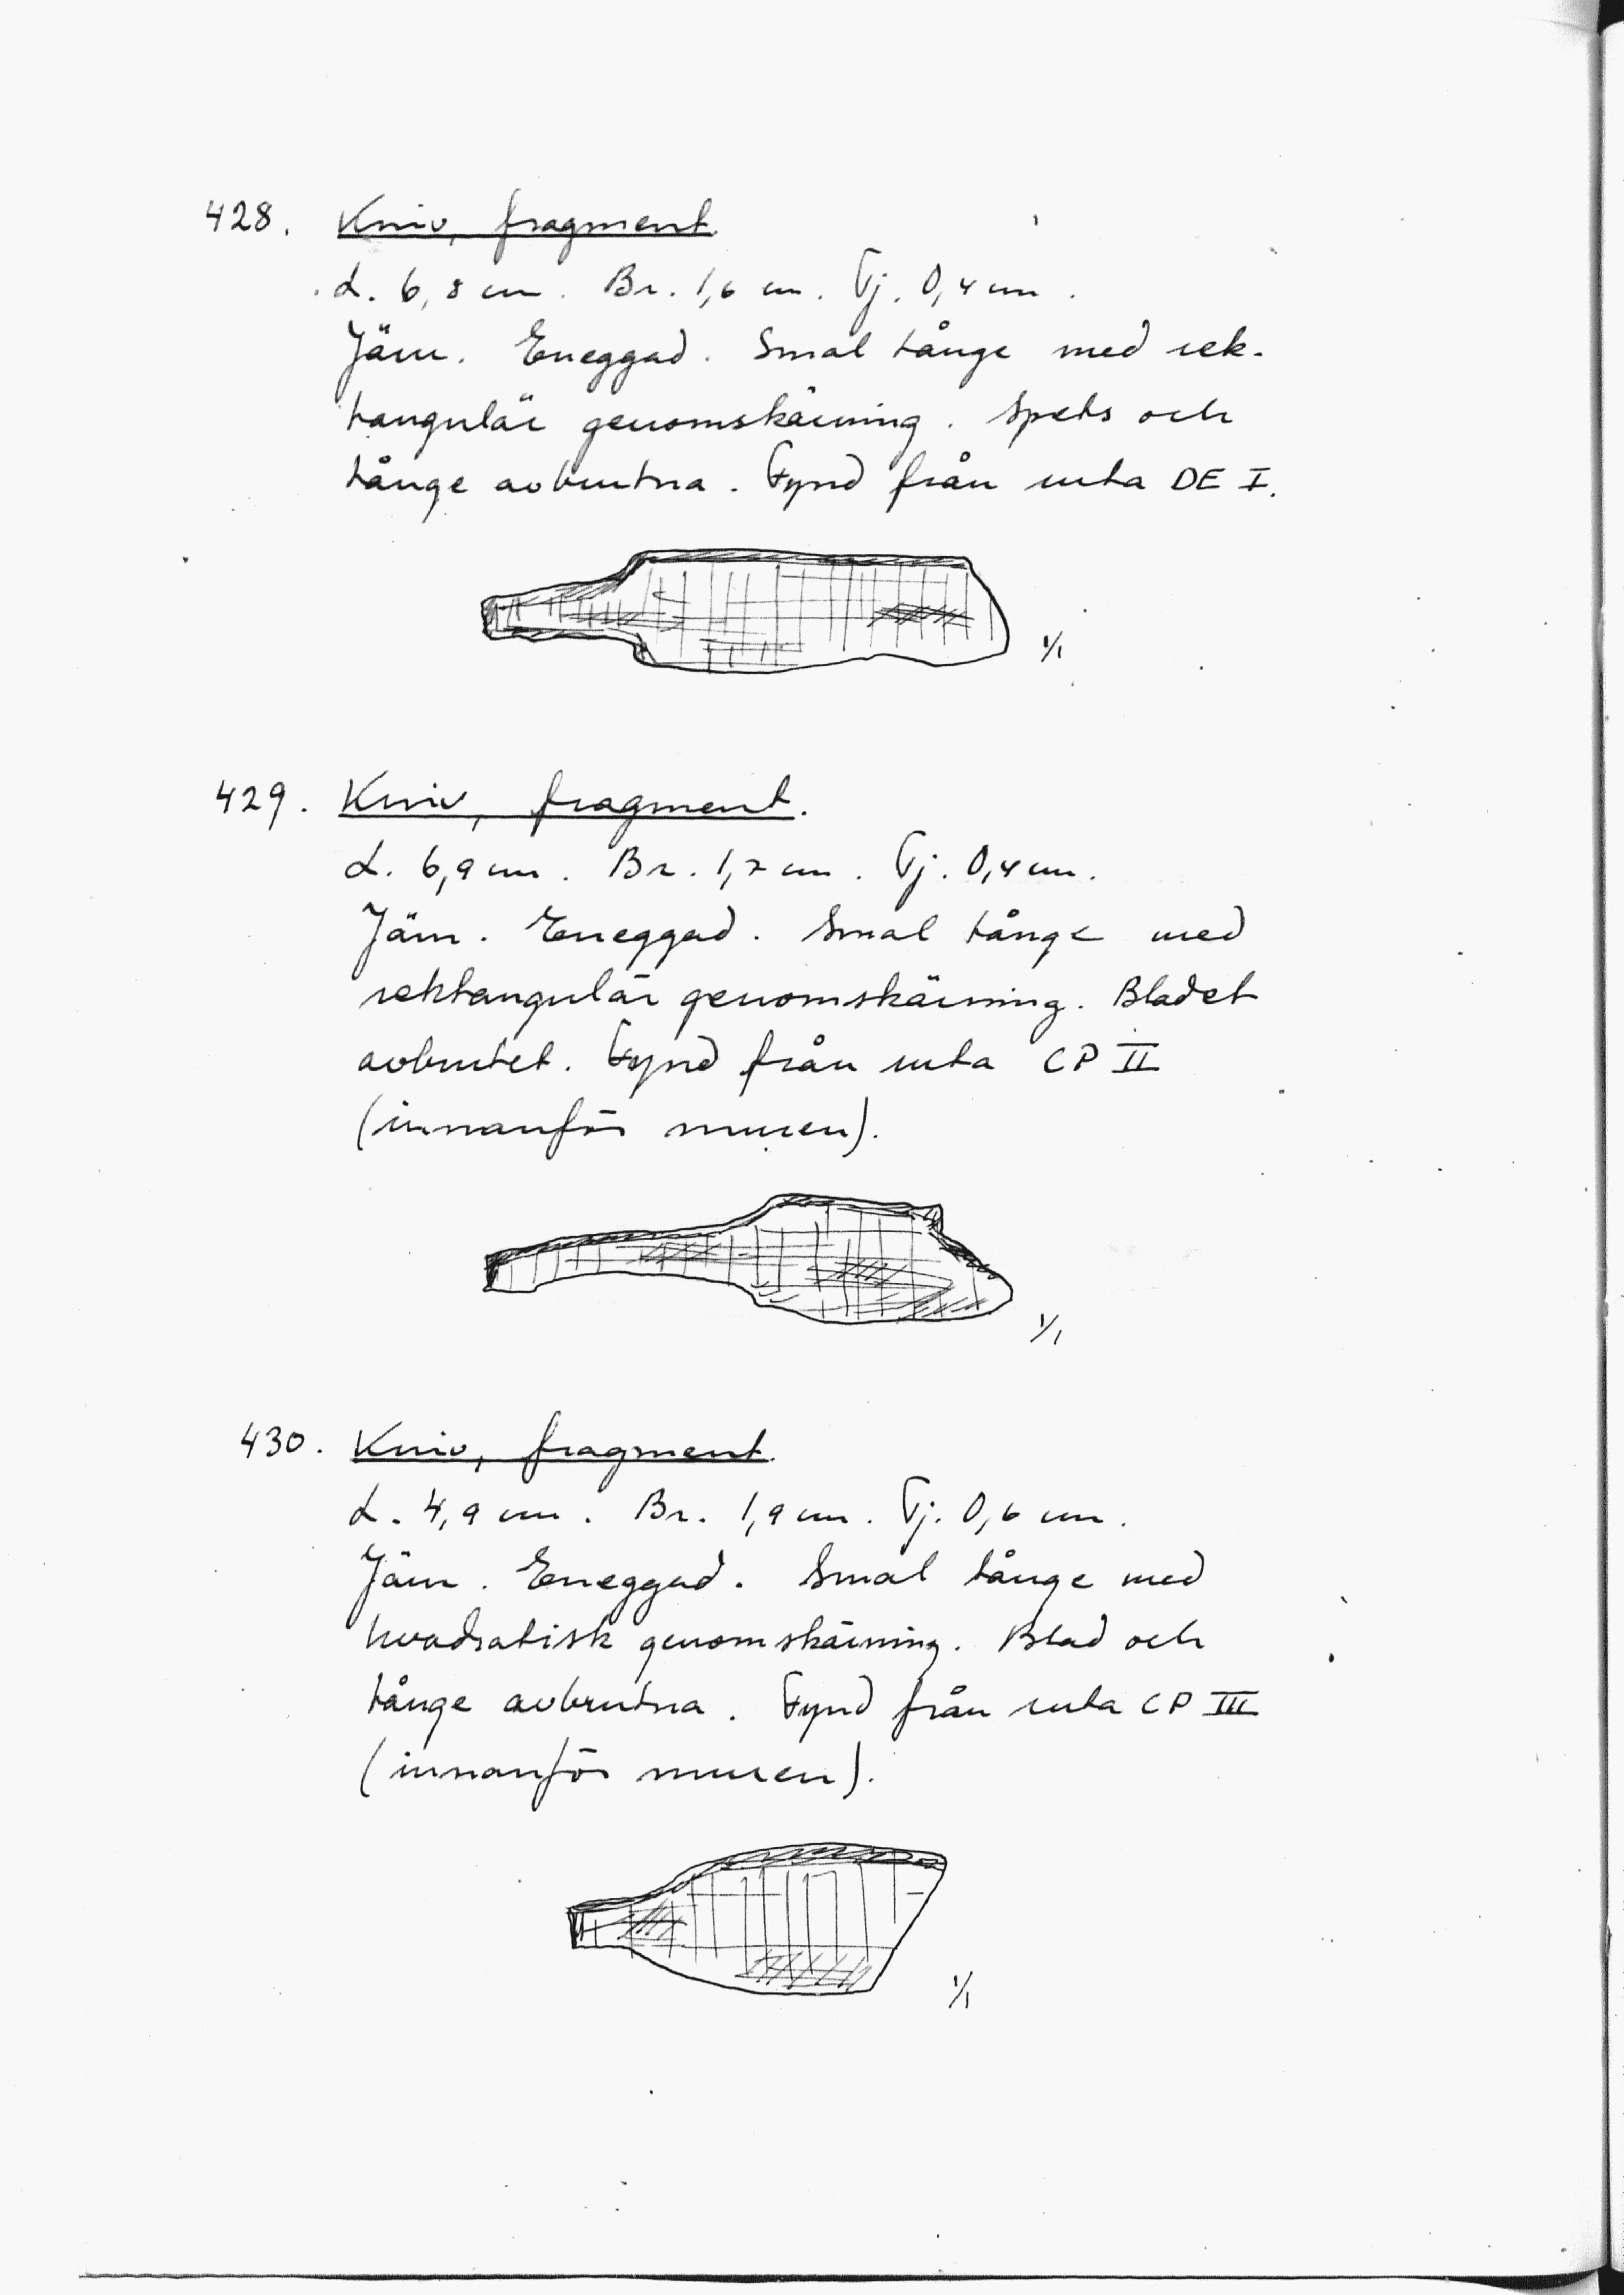 428. Kniv, fragment.
L. 6,8 cm. Br. 1,6 cm. Tj. 0,4 cm.
Järn. Eneggad. Smal tånge med rek-
tangulär genomskärning. Spets och
tånge avbrutna. Fynd från ruta DE I.
1/1
429. Kniv, fragment.
L. 6,9 cm. Br. 1,7 cm. Tj. 0,4 cm.
Järn. Eneggad. Smal tånge med
rektangulär genomskärning. Bladet
avbrutet. Fynd från ruta CP II
(innanför muren).
1/1
430. Kniv, fragment.
L. 4,9 cm. Br. 1,9 cm. Tj. 0,6 cm.
Järn. Eneggad. Smal tånge med
kvadratisk genomskärning. Blad och
tånge avbrutna. Fynd från ruta CP III
(innanför muren).
1/1